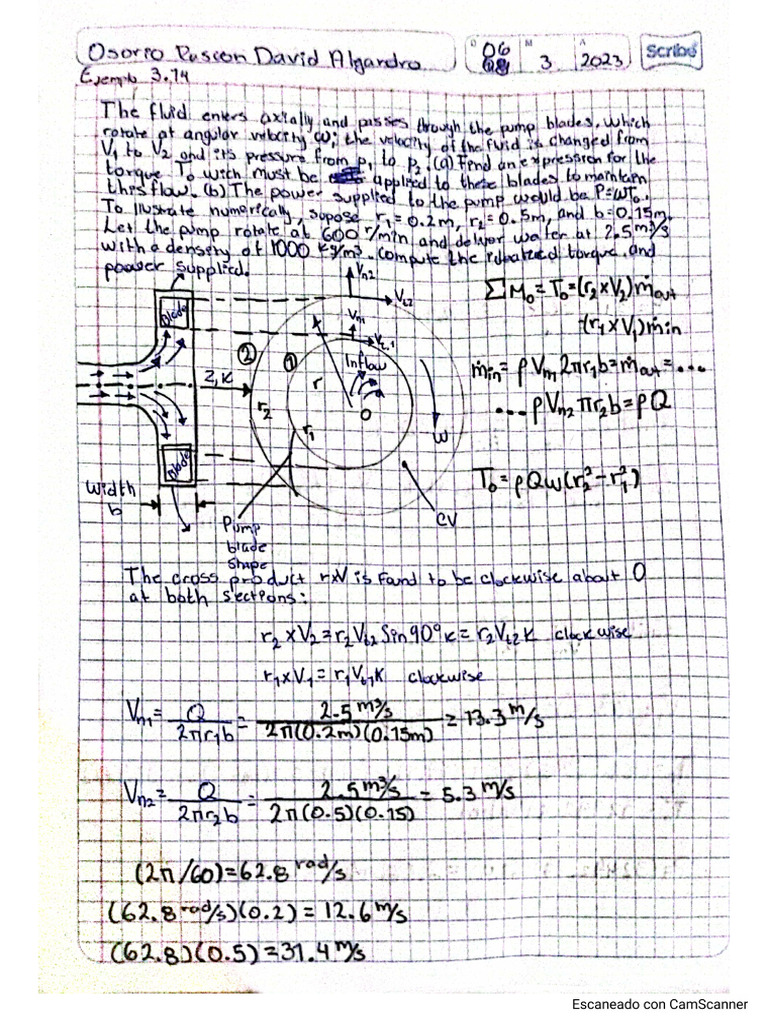 Osorio Puscon David Aljandro
D 06 M 3 A 2023 Scribe
Ejemplo 3.14
The fluid enters axially and passes through the pump blades, which
rotate at angular velocity ω; the velocity of the fluid is changed from
V₁ to V₂ and its pressure from p₁ to p₂. (a) Find an expression for the
torque To wich must be applied to these blades to maintain
this flow. (b) The power supplied to the pump would be P=ωTo.
To Ilustrate numerically, supose r₁=0.2m, r₂=0.5m, and b=0.15m.
Let the pump rotate at 600 r/min and deliver water at 2.5m³/s
with a density of 1000 kg/m³. Compute the torque, and
power supplied.
ΣMo=To=(r₂×V₂)ṁout
-(r₁×V₁)ṁin
ṁin=ρVn₁2πr₁b=ṁout=...
...ρVn₂πr₂b=ρQ
To=ρQω(r₂²-r₁²)
Vn2
Vt2
Vn1
Vt1
Blade
② ①
Inflow
Z,K
r
r₂
r₁
O
ω
Blade
Width
b
Pump
blade
shape
CV
The cross product r×V is found to be clockwise about O
at both sections:
r₂×V₂=r₂Vt2Sin90°K=r₂Vt2K clockwise
r₁×V₁=r₁Vt1K clockwise
Vn1=Q/2πr₁b=2.5m³/s/2π(0.2m)(0.15m)=13.3m/s
Vn2=Q/2πr₂b=2.5m³/s/2π(0.5)(0.15)=5.3m/s
(2π/60)=62.8rad/s
(62.8rad/s)(0.2)=12.6m/s
(62.8)(0.5)=31.4m/s
Escaneado con CamScanner